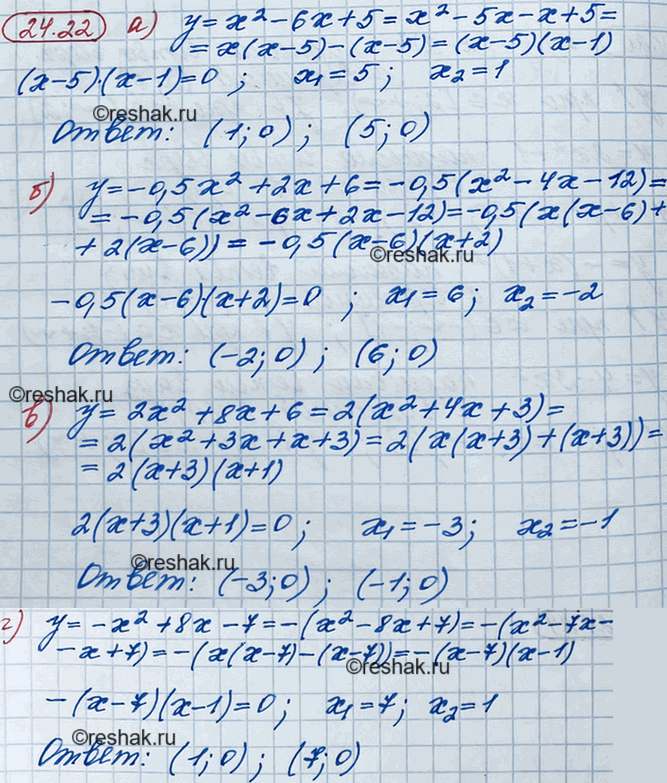 24.22 а) y = x² - 6x + 5 = x² - 5x - x + 5 =
= x(x-5) - (x-5) = (x-5)(x-1)
(x-5)·(x-1) = 0 ; x₁ = 5 ; x₂ = 1
©reshak.ru
Ответ: (1; 0) ; (5; 0)
б) y = -0,5x² + 2x + 6 = -0,5(x² - 4x - 12) =
= -0,5(x² - 6x + 2x - 12) = -0,5(x(x-6) +
+ 2(x-6)) = -0,5(x-6)(x+2)
©reshak.ru
-0,5(x-6)(x+2) = 0 ; x₁ = 6 ; x₂ = -2
Ответ: (-2; 0) ; (6; 0)
©reshak.ru
в) y = 2x² + 8x + 6 = 2(x² + 4x + 3) =
= 2(x² + 3x + x + 3) = 2(x(x+3) + (x+3)) =
= 2(x+3)(x+1)
2(x+3)(x+1) = 0 ; x₁ = -3 ; x₂ = -1
©reshak.ru
Ответ: (-3; 0) ; (-1; 0)
г) y = -x² + 8x - 7 = -(x² - 8x + 7) = -(x² - 7x -
- x + 7) = -(x(x-7) - (x-7)) = -(x-7)(x-1)
-(x-7)(x-1) = 0 ; x₁ = 7 ; x₂ = 1
©reshak.ru
Ответ: (1; 0) ; (7; 0)